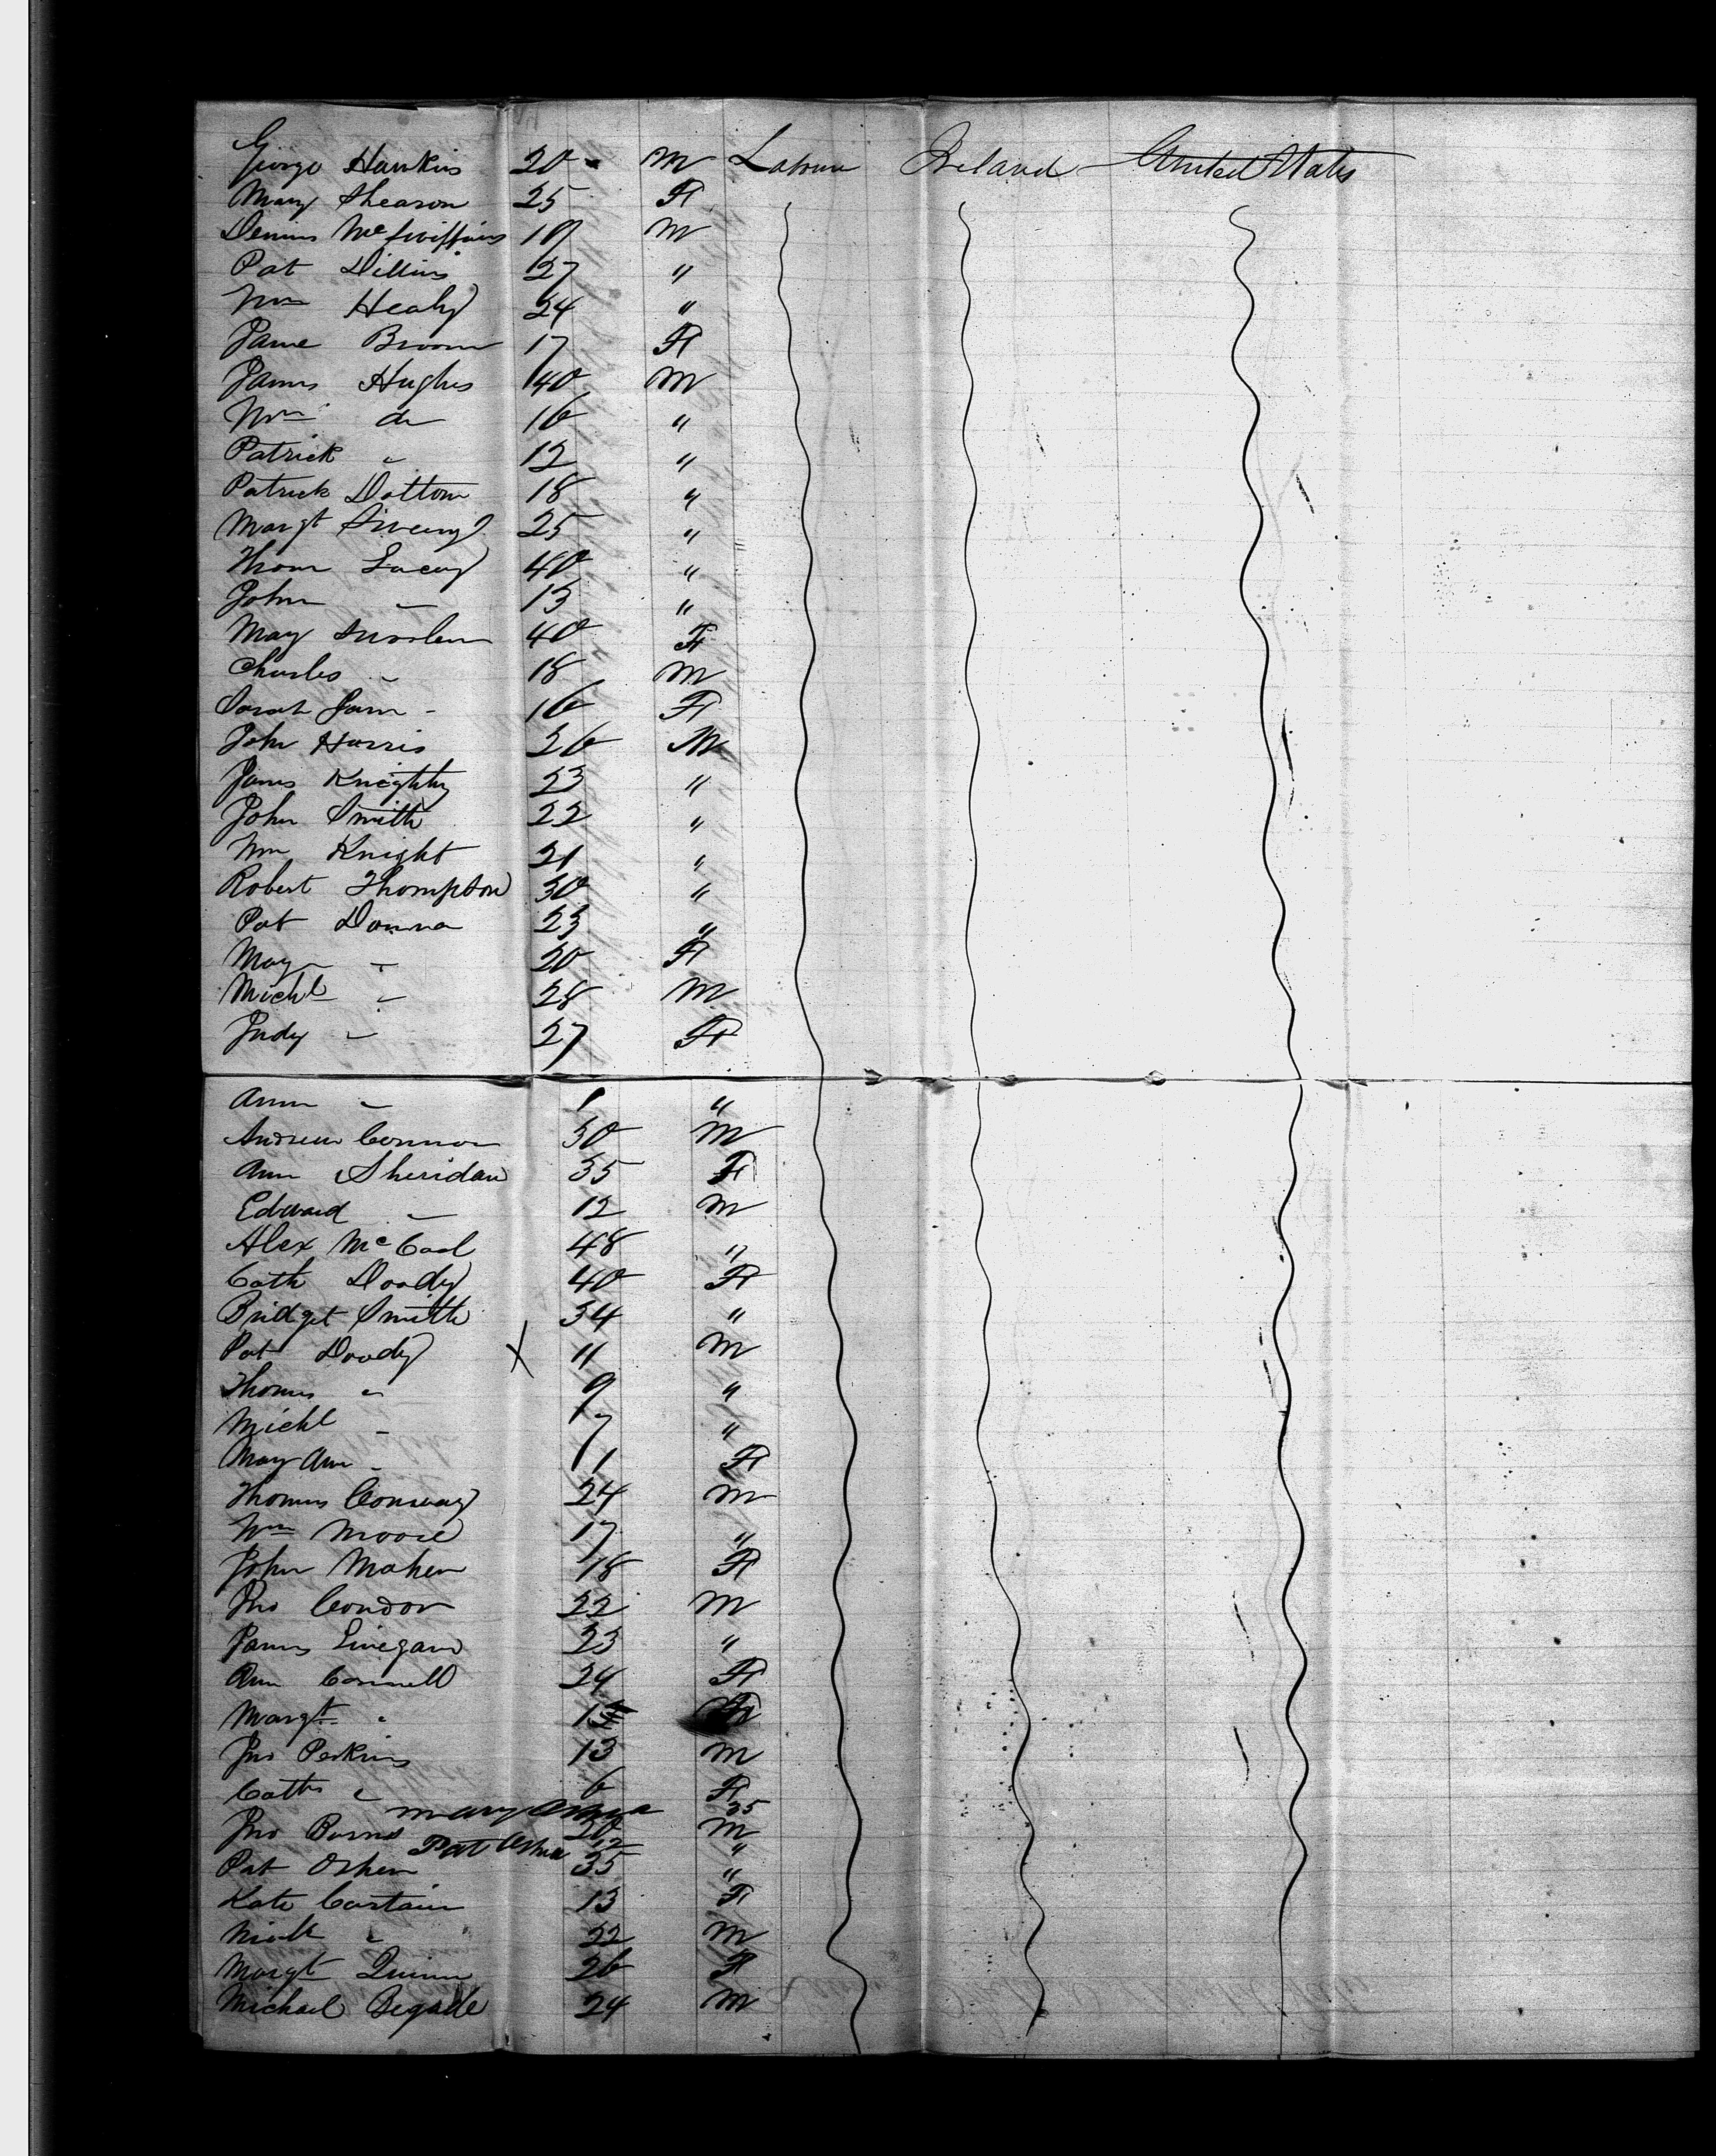 George Hawkins 20 M Labour Ireland United States
Mary Shearon 25 F
Dennis Mc 19 M
Pat Dillins 27 "
Wm Healy 24 "
Jane Broom 17 F
James Hughes 40 M
Wm do 16 "
Patrick " 12 "
Patrick Dottom 18 "
Margt Sweeny 25 "
Thom Lacey 40 "
John " 13 "
May 40 F
Charles " 18 M
Sarah Jane " 16 F
John Harris 26 M
James Knightly 23 "
John Smith 22 "
Wm Knight 21 "
Robert Thompson 30 "
Pat Donna 23 "
May " 20 F
Michl " 28 M
Judy " 27 F
Ann " 1 "
Andrew Connor 30 M
Ann Sheridan 35 F
Edward " 12 M
Alex McCool 48 "
Cath Doody 40 F
Bridget Smith 34 "
Pat Doody X 11 M
Thomas " 9 "
Michl " 7 "
May Ann " 11 F
Thomas Conway 24 M
Wm Moore 17 "
John Maher 18 F
Jno Condon 22 M
James Linegan 23 "
Ann Connell 24 F
Margt " F
Jno Perkins 13 M
Cath " 6 F
Mary 35
Jno Burns 30 M
Pat 12 "
Pat Oshea 35 "
Kate Curtain 13 F
" 22 M
Margt Quinn 26 F
Michael Begade 24 M